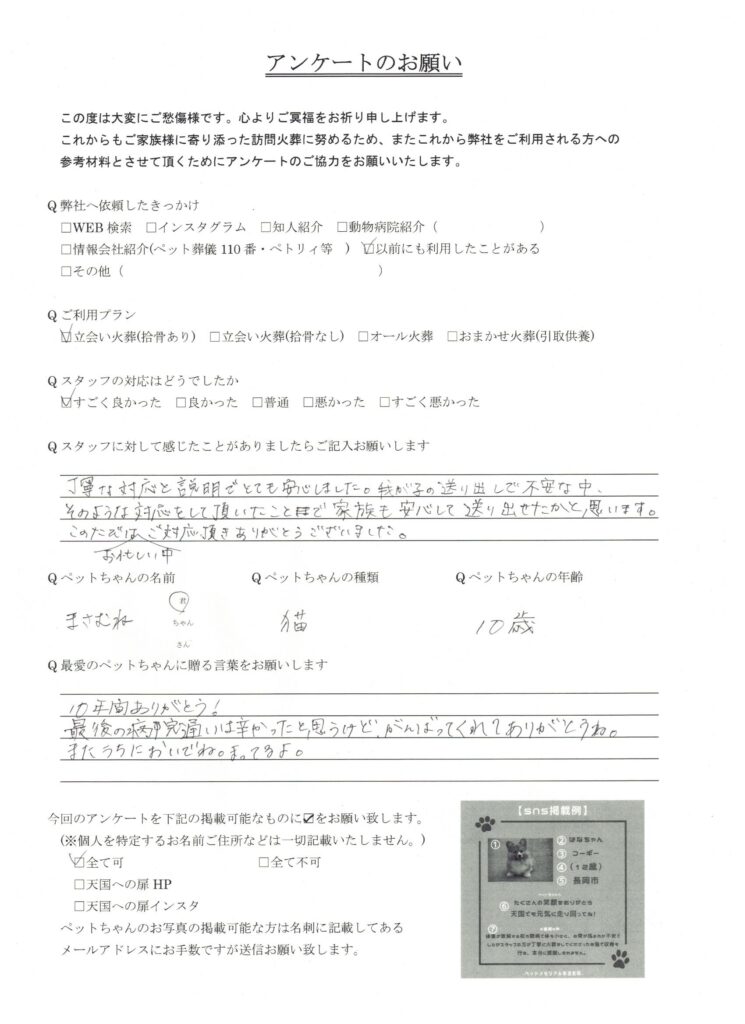 アンケートのお願い
この度は大変にご愁傷様です。心よりご冥福をお祈り申し上げます。
これからもご家族様に寄り添った訪問火葬に努めるため、またこれから弊社をご利用される方への
参考材料とさせて頂くためにアンケートのご協力をお願いいたします。
Q 弊社へ依頼したきっかけ
□WEB 検索 □インスタグラム □知人紹介 □動物病院紹介（ ）
□情報会社紹介(ペット葬儀 110 番・ペトリィ等 ) ☑以前にも利用したことがある
□その他（ ）
Q ご利用プラン
☑立会い火葬(拾骨あり) □立会い火葬(拾骨なし) □オール火葬 □おまかせ火葬(引取供養)
Q スタッフの対応はどうでしたか
☑すごく良かった □良かった □普通 □悪かった □すごく悪かった
Q スタッフに対して感じたことがありましたらご記入お願いします
丁寧な対応と説明でとても安心しました。我が子の送り出しで不安な中、
そのような対応をして頂いたことで家族も安心して送り出せたかと思います。
このたびはご対応頂きありがとうございました。
お忙しい中
Q ペットちゃんの名前 Q ペットちゃんの種類 Q ペットちゃんの年齢
君
まさむね ちゃん 猫 10歳
さん
Q 最愛のペットちゃんに贈る言葉をお願いします
10年間ありがとう！
最後の病院通いは辛かったと思うけど、がんばってくれてありがとうね。
またうちにおいでね。まってるよ。
今回のアンケートを下記の掲載可能なものに☑をお願い致します。
(※個人を特定するお名前ご住所などは一切記載いたしません。)
☑全て可 □全て不可
□天国への扉 HP
□天国への扉インスタ
ペットちゃんのお写真の掲載可能な方は名刺に記載してある
メールアドレスにお手数ですが送信お願い致します。
【sns掲載例】
① ② はなちゃん
③ コーギー
④ (12歳)
⑤ 長岡市
⑥ たくさんの笑顔をありがとう
天国でも元気に走り回ってね!
⑦